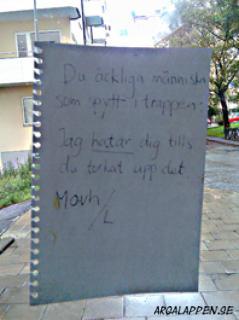 Du äckliga människa
som spytt i trappen:
Jag hatar dig tills
du torkat upp det
Movh
/L
ARGALAPPEN.SE